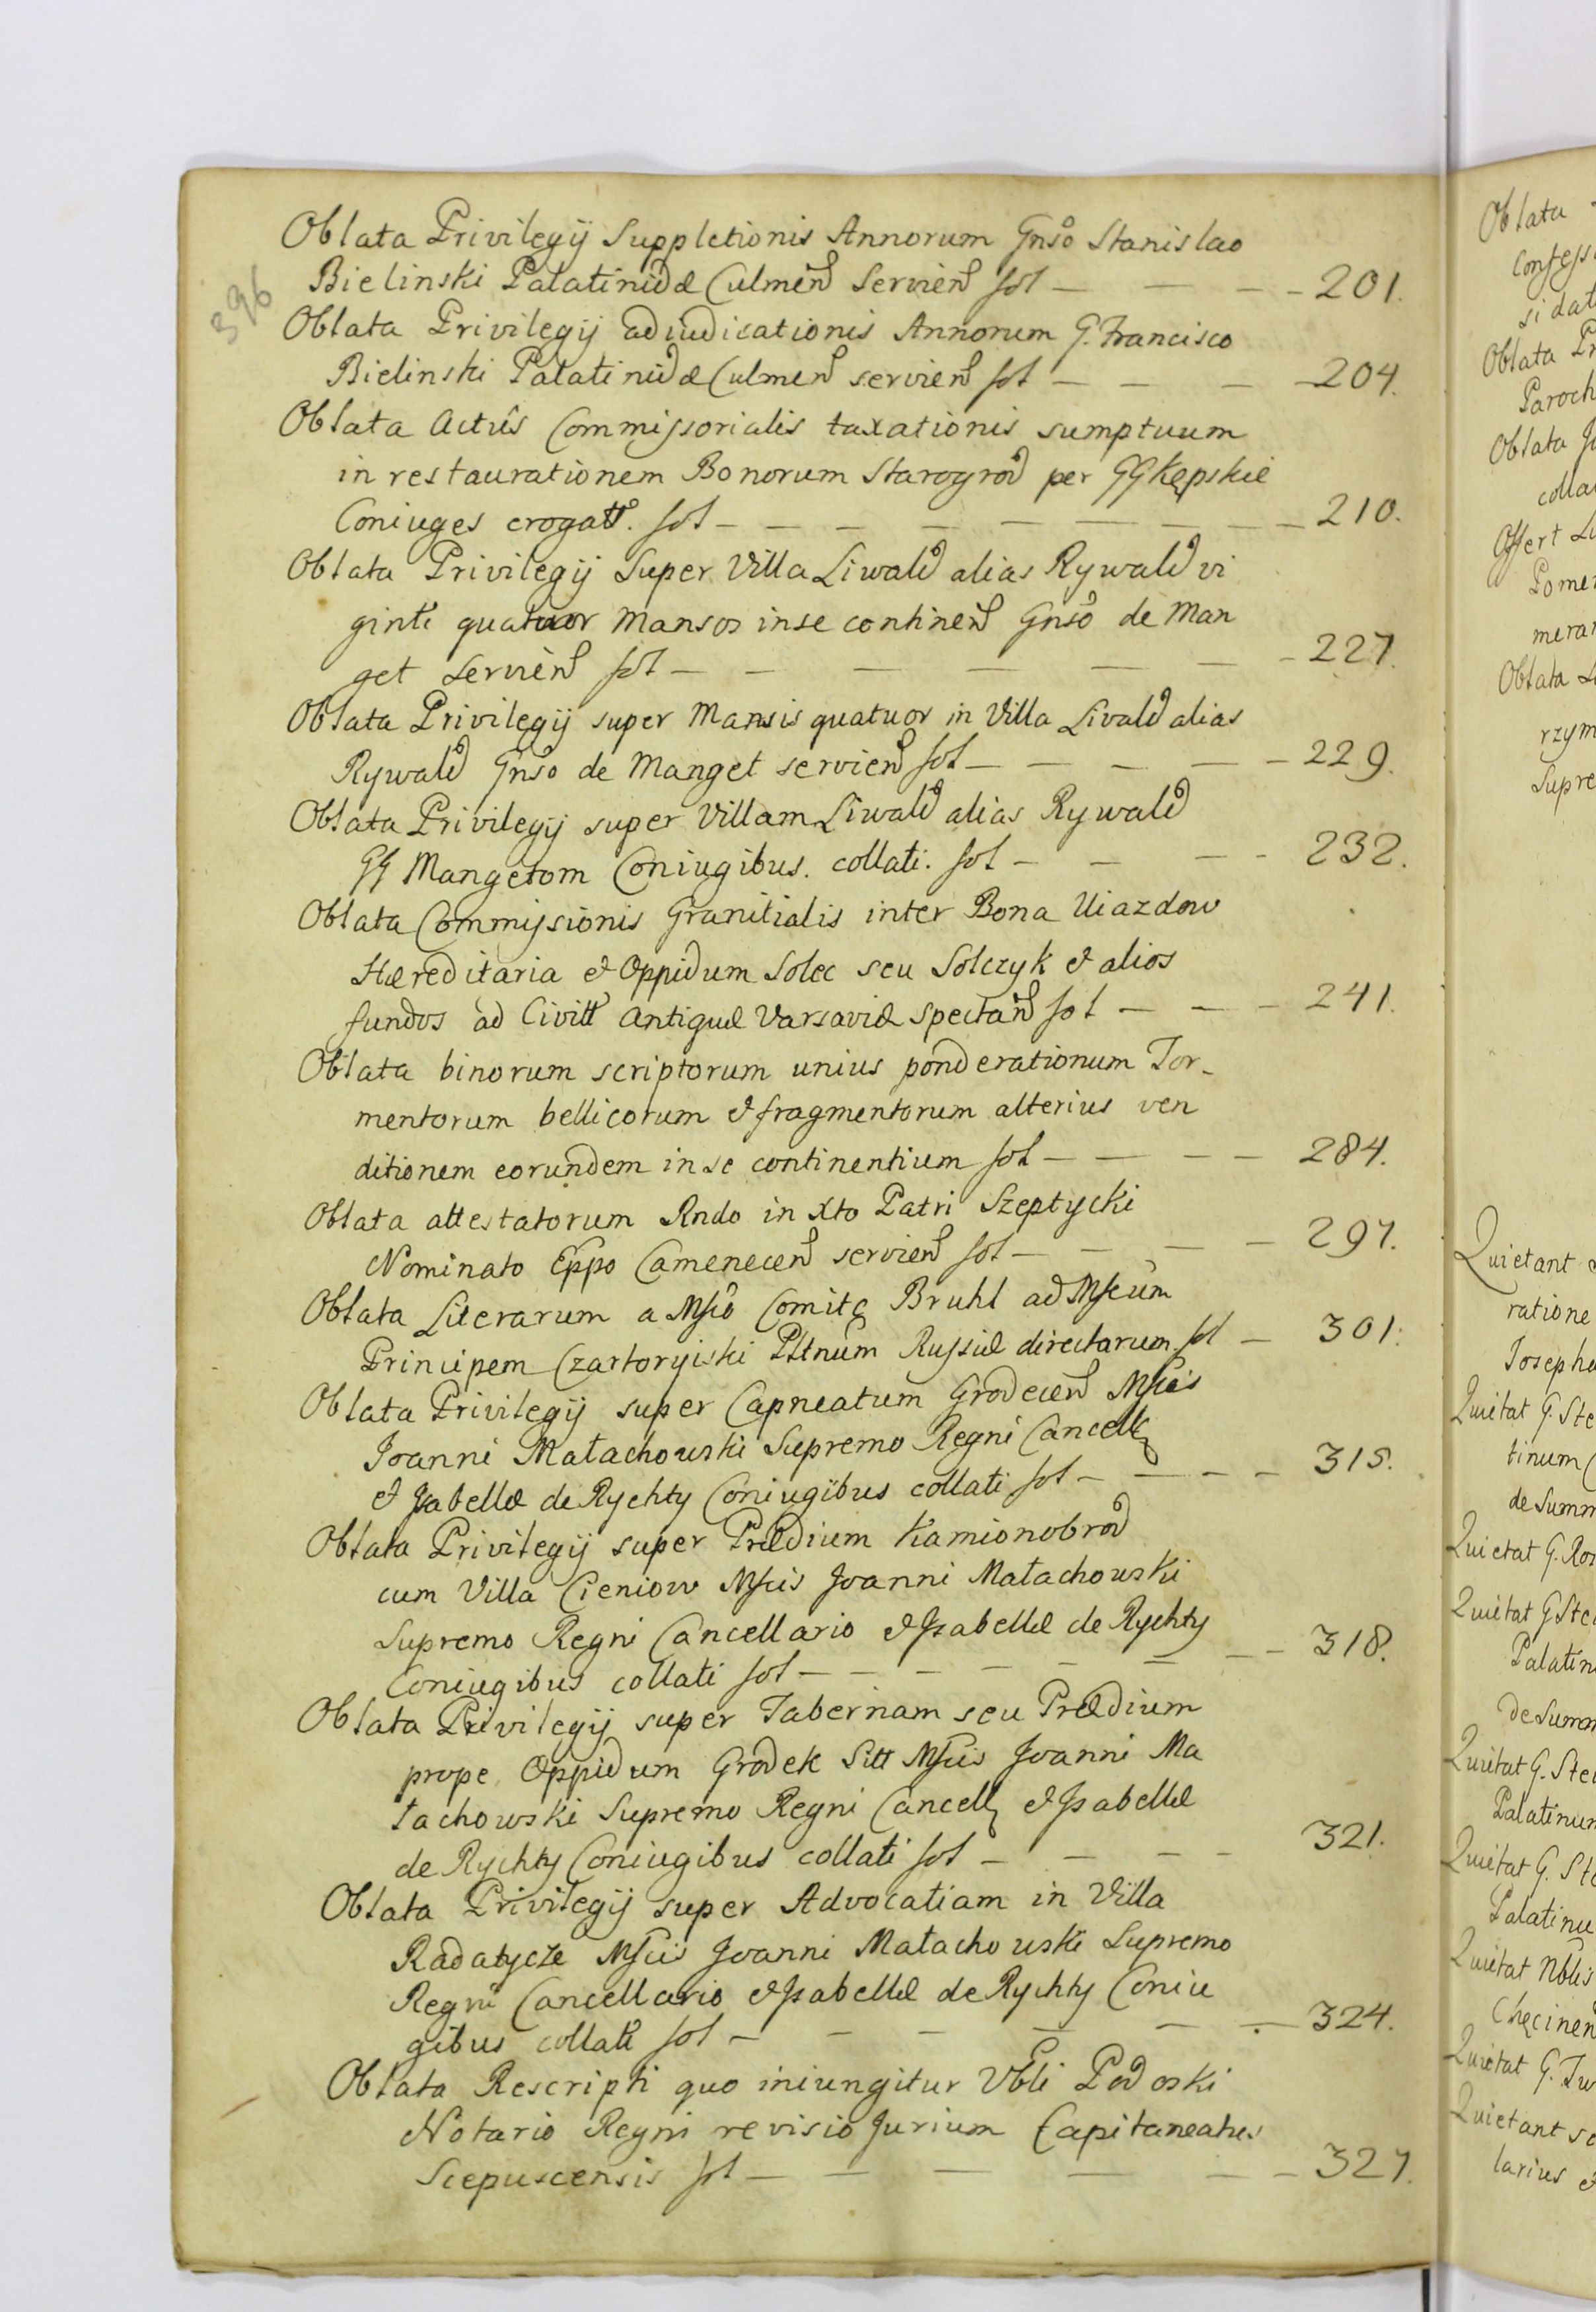 396
Oblata Privilegij Suppletionis Annorum Gnso Stanislao
Bielinski Palatinidæ Culmen Servien fol — — — 201.
Oblata Privilegij adiudicationis Annorum G. Francisco
Bielinski Palatinidæ Culmen servien fol — — — 204.
Oblata Actûs Commissorialis taxationis sumptuum
in restaurationem Bonorum Starogrod per GG Kępskie
Coniuges erogatt. fol — — — — — — — 210.
Oblata Privilegij Super Villa Liwald alias Rywald vi
ginti quatuor Mansos in se continen Gnso de Man
get servien fol — — — — — — 227.
Oblata Privilegij super Mansis quatuor in Villa Livald alias
Rywald Gnso de Manget servien fol — — — — — 229.
Oblata Privilegij super Villam Liwald alias Rywald
GG Mangetom Coniugibus. collati. fol — — — — 232.
Oblata Commissionis Granitialis inter Bona Uiazdow
Hæreditaria et Oppidum Solec seu Solczyk et alios
fundos ad Civitt Antiquæ Varsaviæ spectan fol — — — 241.
Oblata binorum scriptorum unius ponderationum Tor-
mentorum bellicorum et fragmentorum alterius ven
ditionem eorundem in se continentium fol — — — — 284.
Oblata attestatorum Rndo in Xto Patri Szeptycki
Nominato Eppo Camenecen servien fol — — — — 297.
Oblata Literarum a Msco Comite Bruhl ad Mscum
Principem Czartoryiski Pltnum Russiæ directarum fol — 301.
Oblata Privilegij super Capneatum Grodecen Mscis
Joanni Małachowski Supremo Regni Cancell
et Isabellæ de Rychty Coniugibus collati fol — — — — 315.
Oblata Privilegij super Prædium Kamionobrod
cum Villa Cieniow Mscis Joanni Małachowski
Supremo Regni Cancellario et Isabellæ de Rychty
Coniugibus collati fol — — — — — — — — 318.
Oblata Privilegij super Tabernam seu Prædium
prope Oppidum Grodek Sitt Mscis Joanni Ma
łachowski Supremo Regni Cancell et Isabellæ
de Rychty Coniugibus collati fol — — — — 321.
Oblata Privilegij super Advocatiam in Villa
Radatycze Mscis Joanni Małachowski Supremo
Regni Cancellario et Isabellæ de Rychty Coniu
gibus collati fol — — — — — — 324.
Oblata Rescripti quo iniungitur Vbli Podoski
Notario Regni revisio Jurium Capitaneatus
Scepuscensis fol — — — — — — 327.
Oblata
si dat
Oblata Pr
Paroch
Oblata
colla
Offert
Pome
mera
Oblata
rzym
Supre
Quietant
ratione
Josepho
Quietat G. Ste
tinum
de Summ
Quietat G. Ros
Quietat G Ste
Palatin
de Summ
Quietat G. Ste
Palatinum
Quietat G. Ste
Palatinu
Quietat Nblis
Chęcinen
Quietat G. Tw
Quietant
larius et